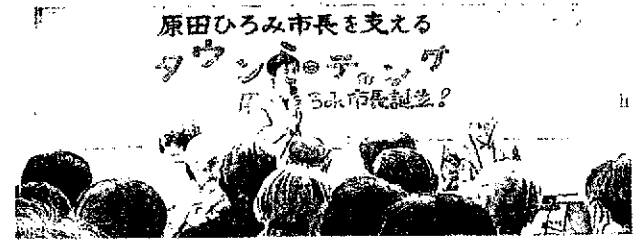 原田ひろみ市長を支える
タウンミーティング
ろみ市長誕生?